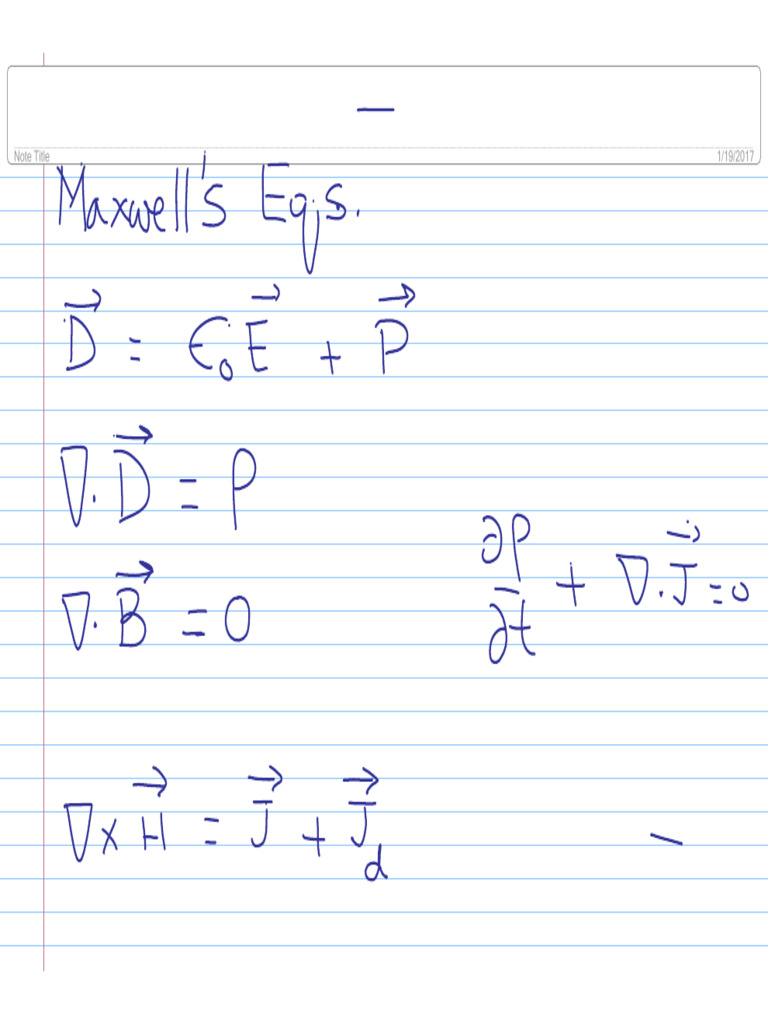 —
Note Title 1/19/2017
Maxwell's Eqs.
D⃗ = ϵ₀E⃗ + P⃗
∇·D⃗ = ρ
∂ρ/∂t + ∇·J⃗ = 0
∇·B⃗ = 0
∇×H⃗ = J⃗ + J⃗_d —